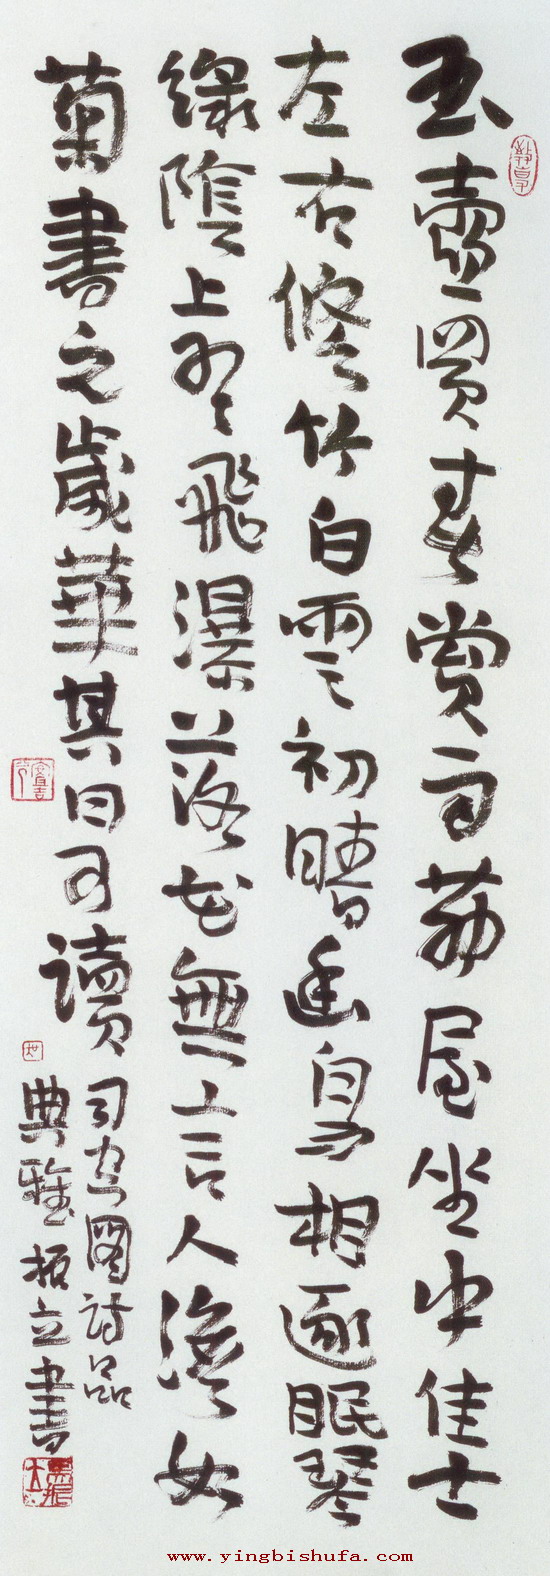 玉壺買春賞雨茅屋坐中佳士
左右修竹白雲初晴幽鳥相逐眠琴
綠陰上有飛瀑落花無言人淡如
菊書之歲華其曰可讀
司空圖詩品
典雅振立書
www.yingbishufa.com